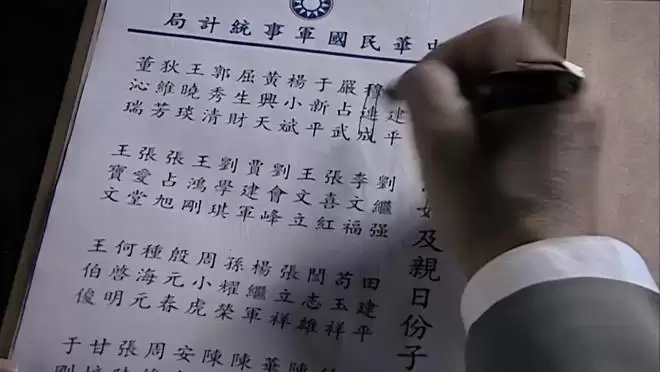 中華民國軍事統計局
奸及親日份子
建平
穆連成
嚴占武
于新平
楊小斌
黃興天
屈生財
郭秀清
王曉琰
狄維芳
董沁瑞
劉繼强
李文福
張喜紅
王文立
劉會峰
賈建軍
劉學琪
王鴻剛
張占旭
張愛堂
王寶文
田建平
苟玉祥
閆志雄
張立祥
楊繼軍
孫耀榮
周小虎
殷元春
種海元
何啓明
王伯俊
陳
華
陳
陳
安
周
張
甘
于剛